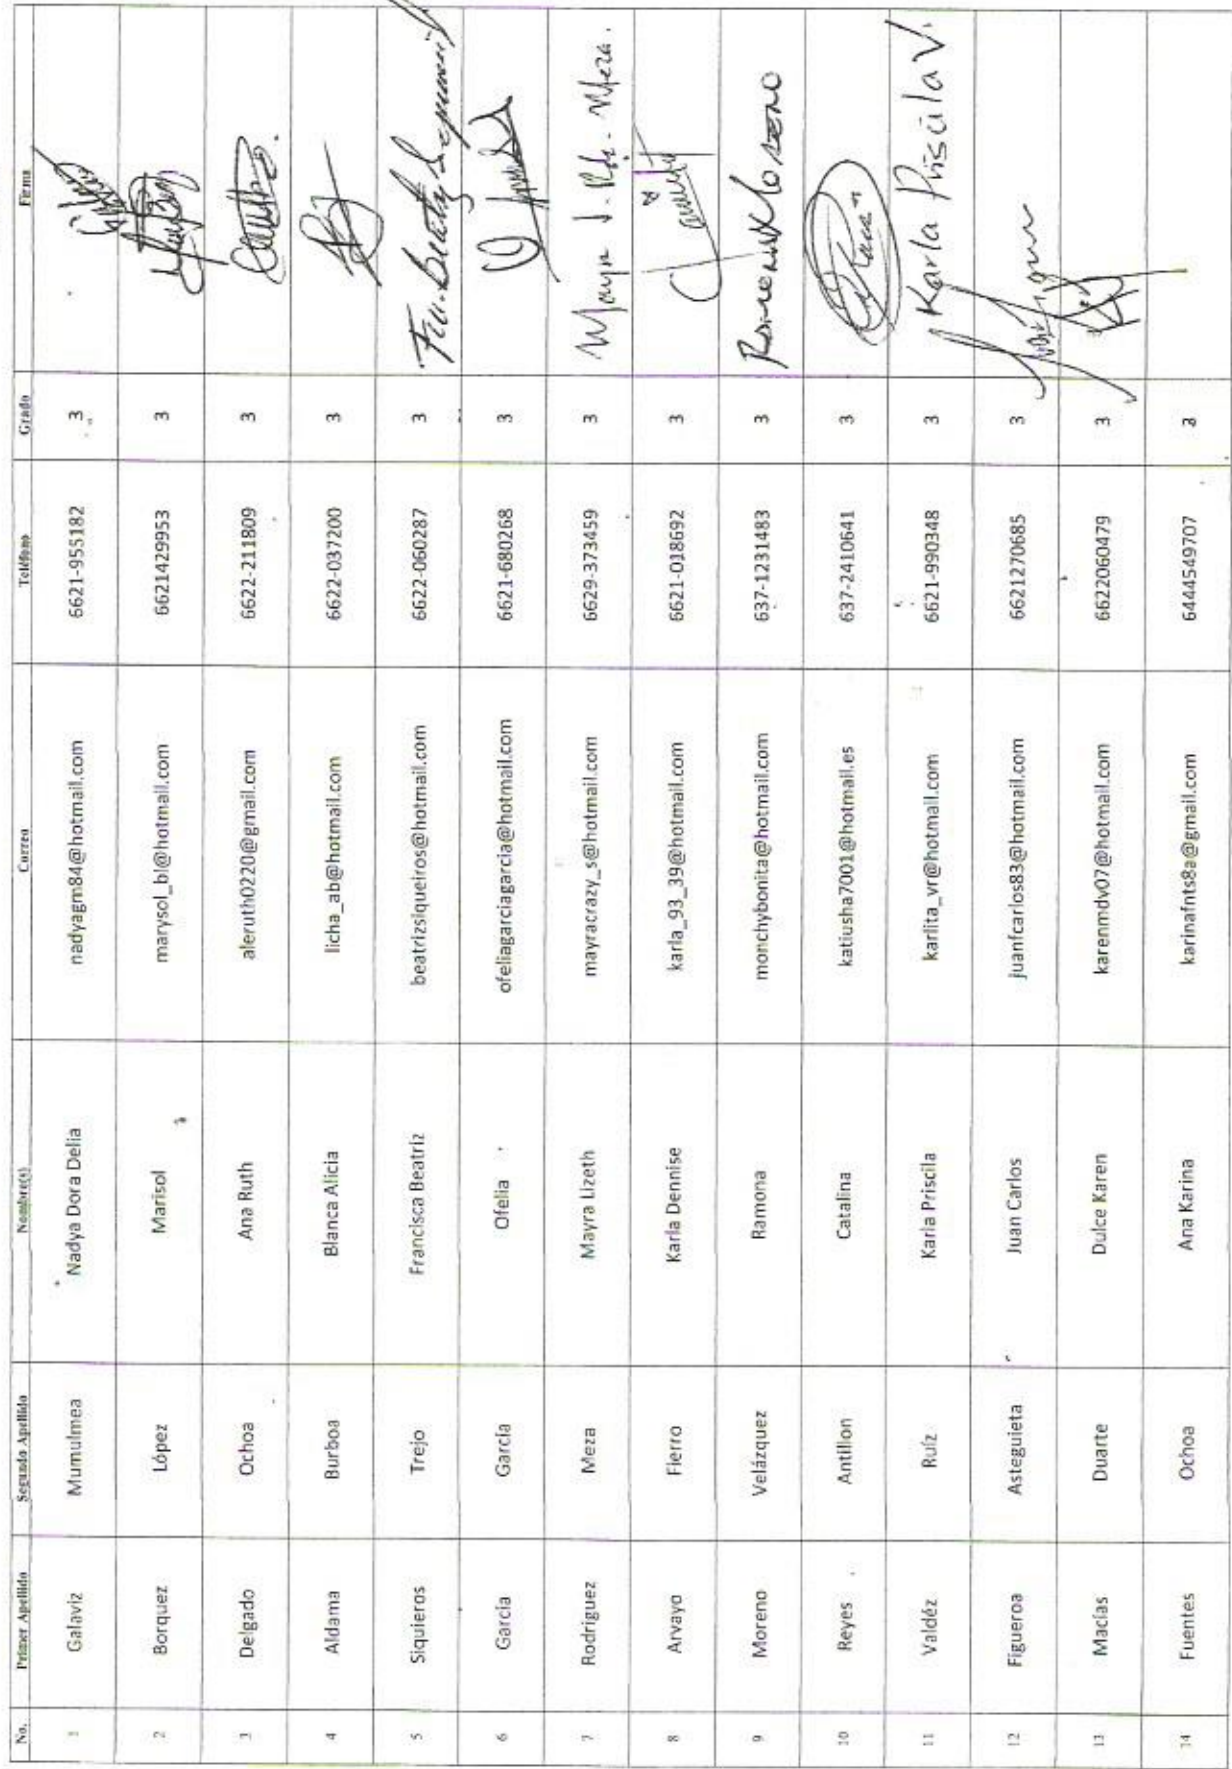 No. Primer Apellido Segundo Apellido Nombre(s) Correo Teléfono Grado Firma
1 Galaviz Mumulmea Nadya Dora Delia nadyagm84@hotmail.com 6621-955182 3
2 Borquez López Marisol marysol_bl@hotmail.com 6621429953 3
3 Delgado Ochoa Ana Ruth aleruth0220@gmail.com 6622-211809 3
4 Aldama Burboa Blanca Alicia licha_ab@hotmail.com 6622-037200 3
5 Siquieros Trejo Francisca Beatriz beatrizsiqueiros@hotmail.com 6622-060287 3
6 Garcia García Ofelia ofeliagarciagarcia@hotmail.com 6621-680268 3
7 Rodriguez Meza Mayra Lizeth mayracrazy_s@hotmail.com 6629-373459 3 Mayra
8 Arvayo Fierro Karla Dennise karla_93_39@hotmail.com 6621-018692 3
9 Moreno Velázquez Ramona monchybonita@hotmail.com 637-1231483 3
10 Reyes Antillon Catalina katiusha7001@hotmail.es 637-2410641 3
11 Valdéz Ruíz Karla Priscila karlita_vr@hotmail.com 6621-990348 3 Karla Priscila V.
12 Figueroa Asteguieta Juan Carlos juanfcarlos83@hotmail.com 6621270685 3
13 Macías Duarte Dulce Karen karenmdv07@hotmail.com 6622060479 3
14 Fuentes Ochoa Ana Karina karinafnts8a@gmail.com 6444549707 3